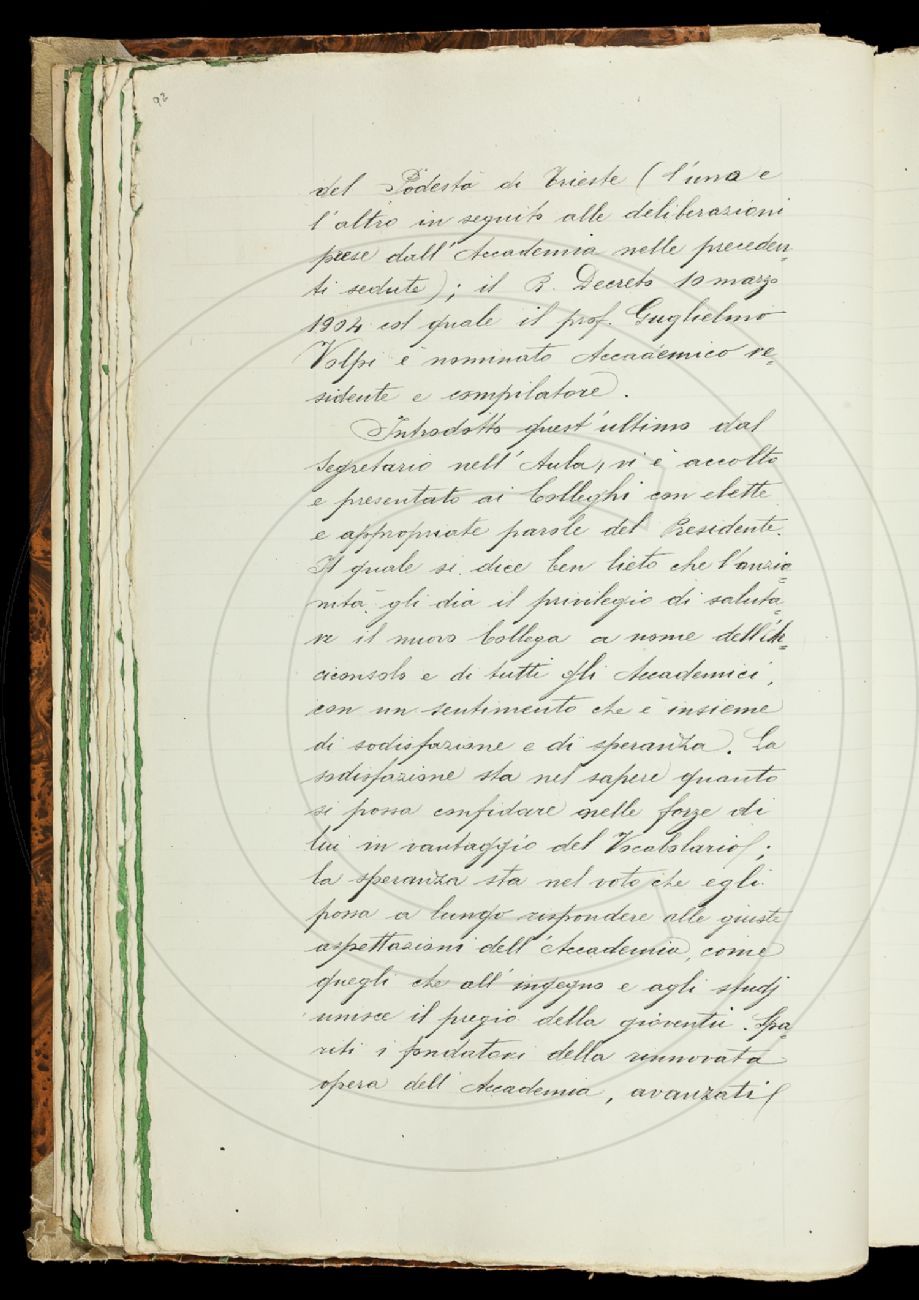 92
del Podestà di Trieste (l'una e
l'altro in seguito alle deliberazioni
prese dall'Accademia nelle preceden-
ti sedute); il R. Decreto 10 marzo
1904 col quale il prof. Guglielmo
Volpi è nominato Accademico re-
sidente e compilatore.
Introdotto quest'ultimo dal
Segretario nell'Aula, vi è accolto
e presentato ai Colleghi con elette
e appropriate parole del Presidente.
Il quale si dice ben lieto che l'anzia-
nità gli dia il privilegio di saluta-
re il nuovo Collega a nome dell'Ar-
ciconsolo e di tutti gli Accademici,
con un sentimento che è insieme
di sodisfazione e di speranza. La
sodisfazione sta nel sapere quanto
si possa confidare nelle forze di
lui in vantaggio del Vocabolario;
la speranza sta nel voto che egli
possa a lungo rispondere alle giuste
aspettazioni dell'Accademia, come
quegli che all'ingegno e agli studj
unisce il pregio della gioventù. Spa-
riti i fondatori della rinnovata
opera dell'Accademia, avanzati